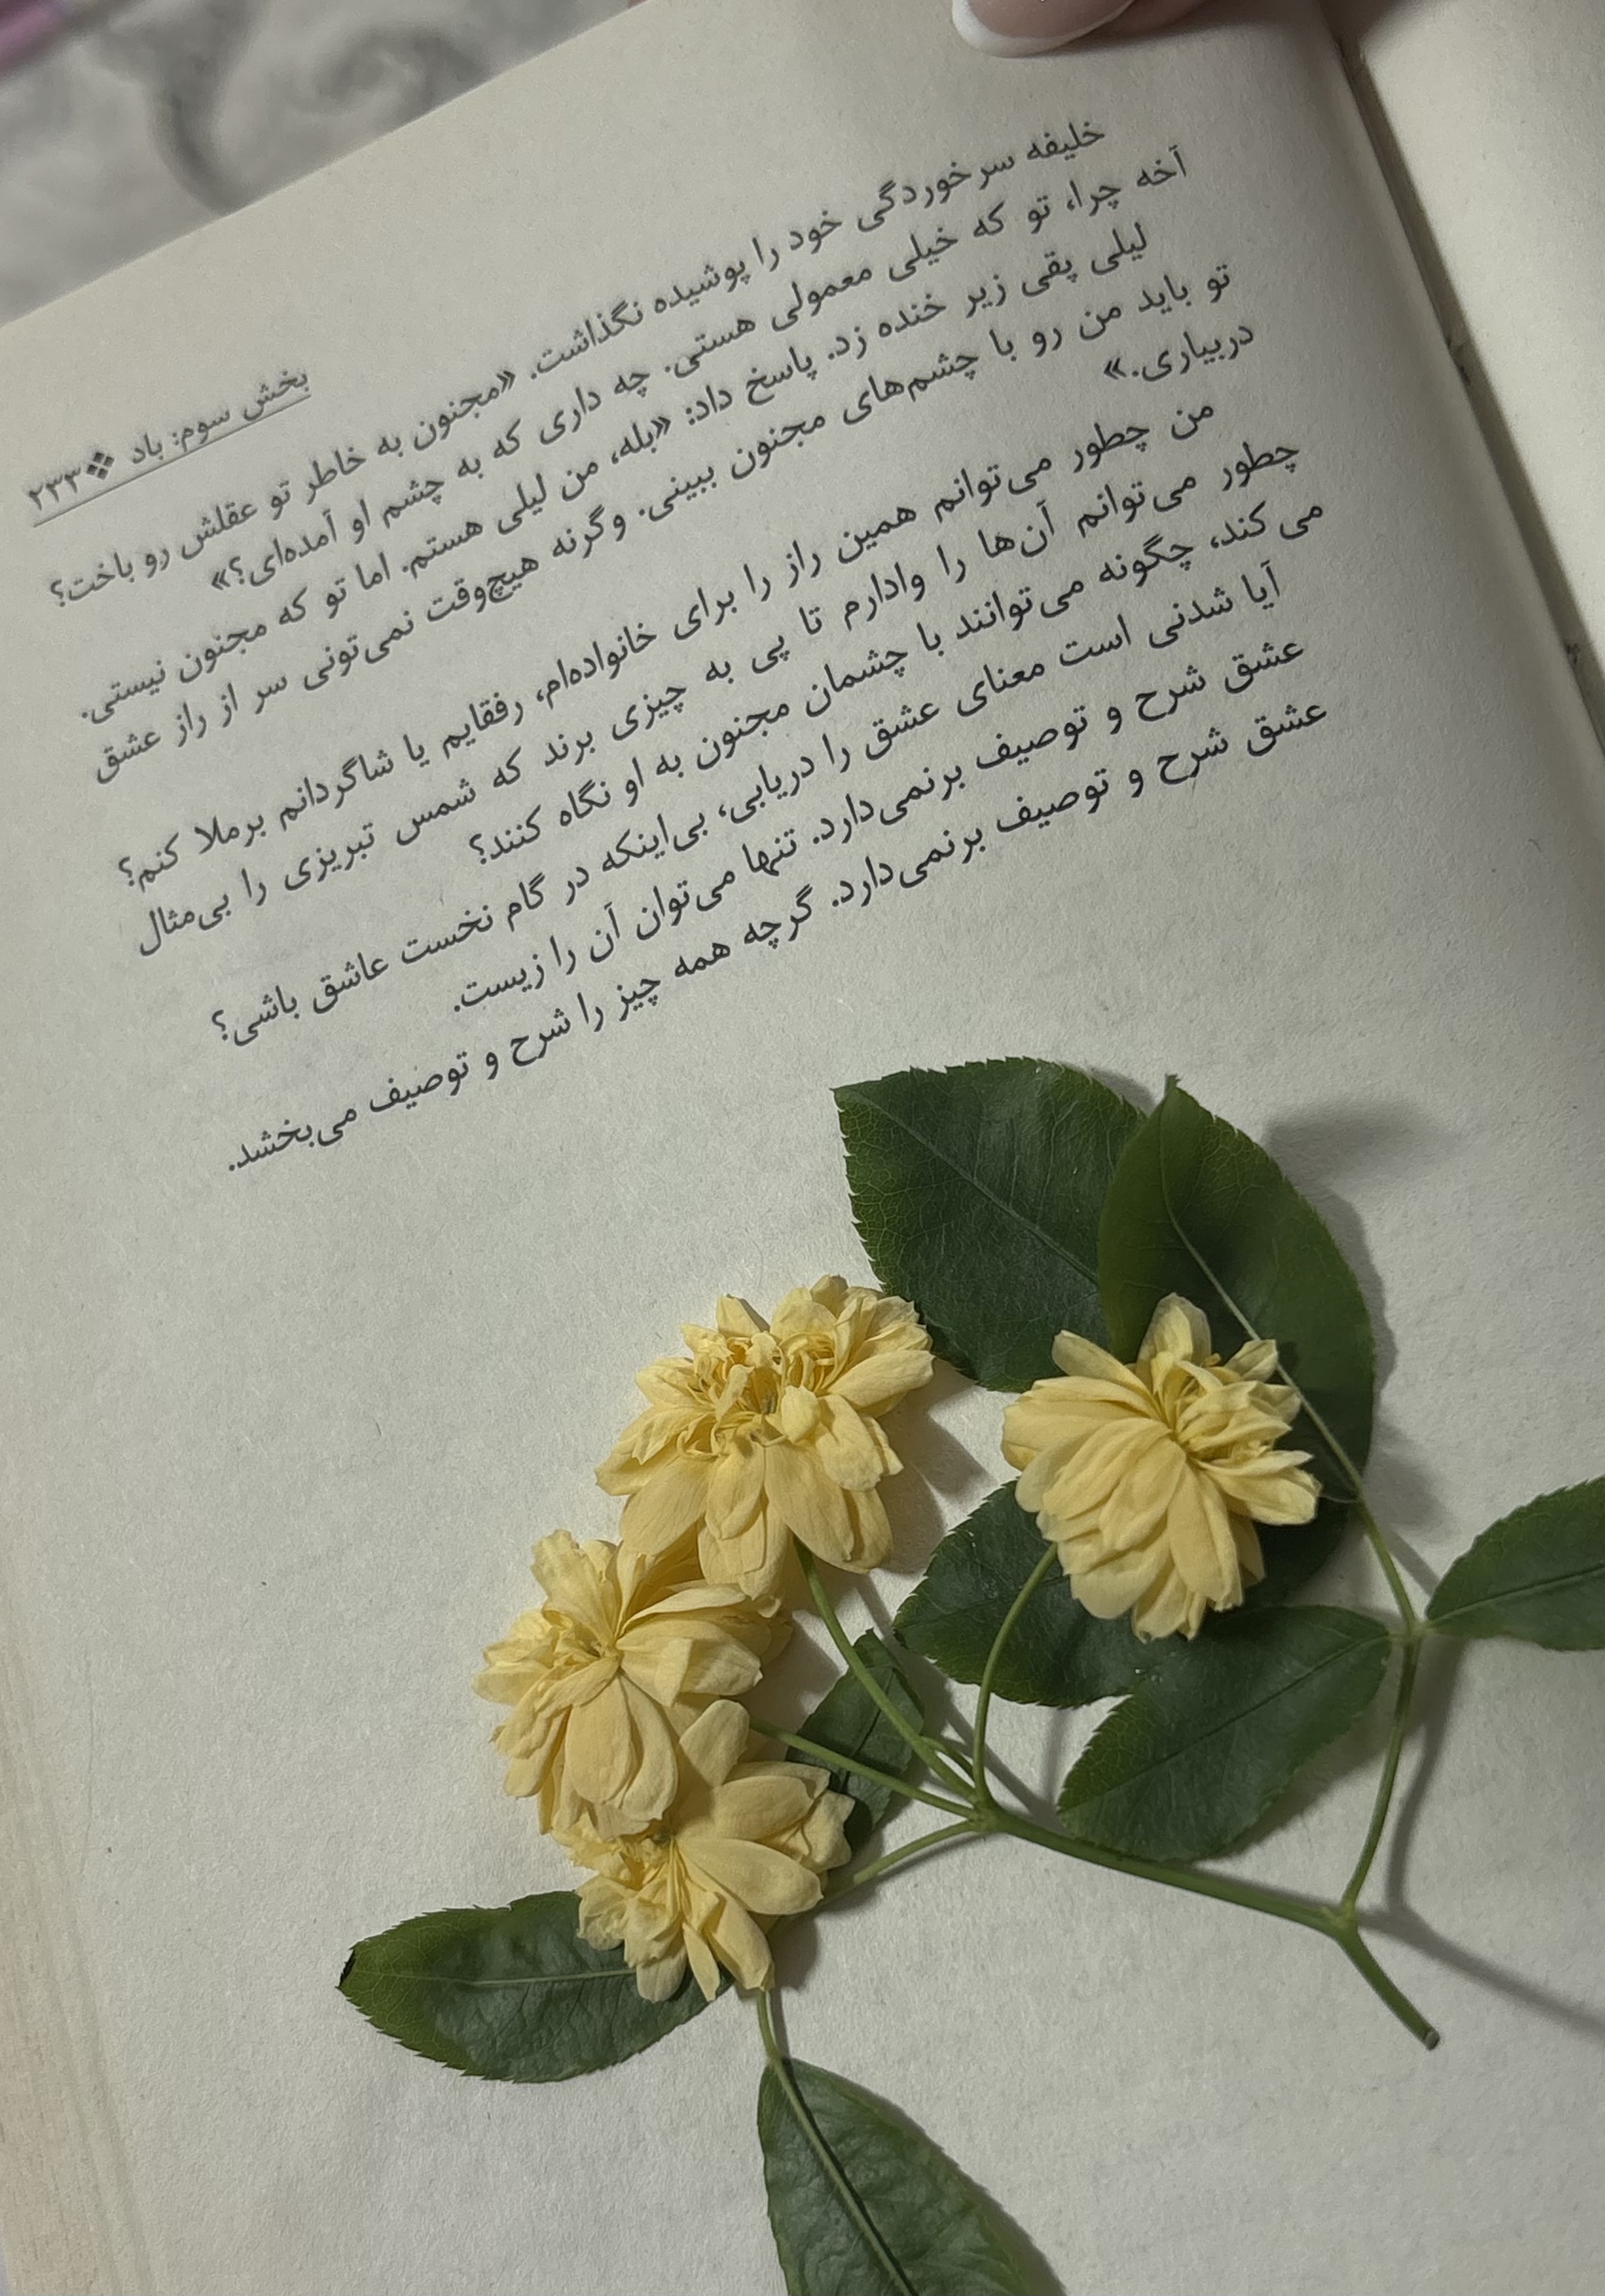 بخش سوم: باد ❖ ۲۳۳
خلیفه سرخوردگی خود را پوشیده نگذاشت. «مجنون به خاطر تو عقلش رو باخت؟
آخه چرا، تو که خیلی معمولی هستی. چه داری که به چشم او آمده‌ای؟»
لیلی پقی زیر خنده زد. پاسخ داد: «بله، من لیلی هستم. اما تو که مجنون نیستی.
تو باید من رو با چشم‌های مجنون ببینی. وگرنه هیچ‌وقت نمی‌تونی سر از راز عشق
دربیاری.»
من چطور می‌توانم همین راز را برای خانواده‌ام، رفقایم یا شاگردانم برملا کنم؟
چطور می‌توانم آن‌ها را وادارم تا پی به چیزی برند که شمس تبریزی را بی‌مثال
می کند، چگونه می‌توانند با چشمان مجنون به او نگاه کنند؟
آیا شدنی است معنای عشق را دریابی، بی‌اینکه در گام نخست عاشق باشی؟
عشق شرح و توصیف برنمی‌دارد. تنها می‌توان آن را زیست.
عشق شرح و توصیف برنمی‌دارد. گرچه همه چیز را شرح و توصیف می‌بخشد.